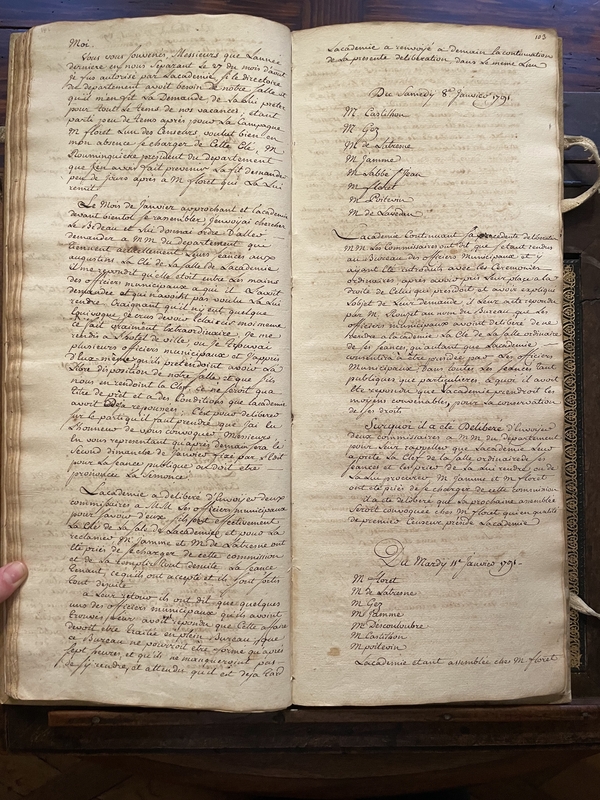 Moi.
Vous vous souvenés Messieurs que Lannee
derniere en nous separant Le 27 du mois d'aout
je fus autorisé par Lacademie, si le directoire
du departement avoit besoin de notre Salle et
quil m'en fit La Demande de La Lui preter
pour tout Le tems de nos vacances, etant
parti peu de tems apres pour La Campagne
M floret Lun des Censeurs voulut bien en
mon absence se charger de Cette Clé, M
Rouminguiere president du departement
que j'en avois fait prevenir La fit demander
peu de jours après a M floret qui La Lui
remit.
Le Mois de Janvier approchant et Lacademie
devant bientot se rassembler j'envoyai chercher
Le Bedeau et Lui donnai ordre D'aller
demander a MM du departement qui
tiennent actuellement Leurs seances aux
augustins La Clé de La Salle de Lacademie
Il me repondit qu'elle etoit entre Les mains
des officiers municipaux a qui il L'avoit
demandée et qui n'avoient pas voulu La Lui
rendre. Craignant qu'il n'y eut quelque
Equivoque je crus devoir Eclaircir moi meme
ce fait vraiment Extraordinaire, Je me
rendis a L'hotel de ville, ou je trouvai
plusieurs officiers municipaux et J'appris
D'Eux memes qu'ils pretendoient avoir La
Libre disposition de notre Salle et que s'ils
nous en rendoient La Clef, ce ne seroit qua
titre de prêt et a des Conditions que Lacademie
avoit repoussées; C'est pour deliberer
sur le parti qu'il faut prendre que J'ai eu
L'honneur de vous convoquer, Messieurs,
En vous representant qu'après demain sera le
Second dimanche de Janvier fixé par
pour La seance publique ou doit etre
prononcée La Semonce.
Lacademie a deliberé d'Envoyer deux
commissaires a MM Les officiers municipaux
pour savoir d'eux s'ils ont effectivement
La Clé de La Sale de Lacademie et pour La
reclamer, M Jamme et M de Latresne ont
été priés de se charger de cette commission
et de La remplir tout desuite La seance
tenant, ce qu'ils ont accepté et ils sont sortis
tout desuite.
a Leur retour ils ont dit que quelques
uns des officiers municipaux qu'ils avoient
trouvés, Leur avoit repondu que Cette affaire
devoit etre traitée en plein Bureau, que
ce Bureau ne pourroit etre formé qu'après
sept heures, et qu'ils ne manqueroient pas
de s'y rendre, et attendu qu'il est deja tard
103
Lacademie a renvoyé a demain la continuation
de La presente deliberation dans Le meme Lieu
Du Samedy 8e Janvier 1791.
M. Castilhon
M Gez
M de Latresne
M Jamme
M Labbé St Jean
M floret
M Poitevin
M de Lavedan
Lacademie Continuant sa precedente deliberation
MM Les commissaires ont dit que s'etant rendus
au Bureau des officiers Municipaux et y
ayant été introduits avec Les Ceremonies
ordinaires, après avoir pris Leur place a La
droite de Celui qui presidoit et avoir expliqué
Lobjet de Leur demande, il Leur a eté repondu
par M. Rouzet au nom du Bureau que Les
officiers municipaux avoient deliberé de ne
rendre a Lacademie La Clé de La Salle ordinaire
de ses seances, qu'autant que Lacademie
consentira a etre presidée par Les officiers
Municipaux dans toutes Les seances tant
publiques que particulieres, a quoi il avoit
eté repondu que Lacademie prendroit les
moyens convenables pour La conservation
de ses droits.
Surquoi il a été Deliberé d'Envoyer
deux commissaires a MM du departement
pour Leur rappeller que Lacademie Leur
a preté La Clef de La Salle ordinaire de ses
seances et Les prier de La Lui rendre ou de
La Lui procurer, M Jamme et M floret
ont eté priés de se charger de cette commission
il a eté deliberé que La prochaine assemblée
seroit convoquée chez M floret qui en qualité
de premier Censeur preside Lacademie
Du Mardy 11e Janvier 1791.
M floret
M de Latresne
M Gez
M Jamme
M Descouloubre
M Castilhon
M poitevin
Lacademie etant assemblée chez M floret